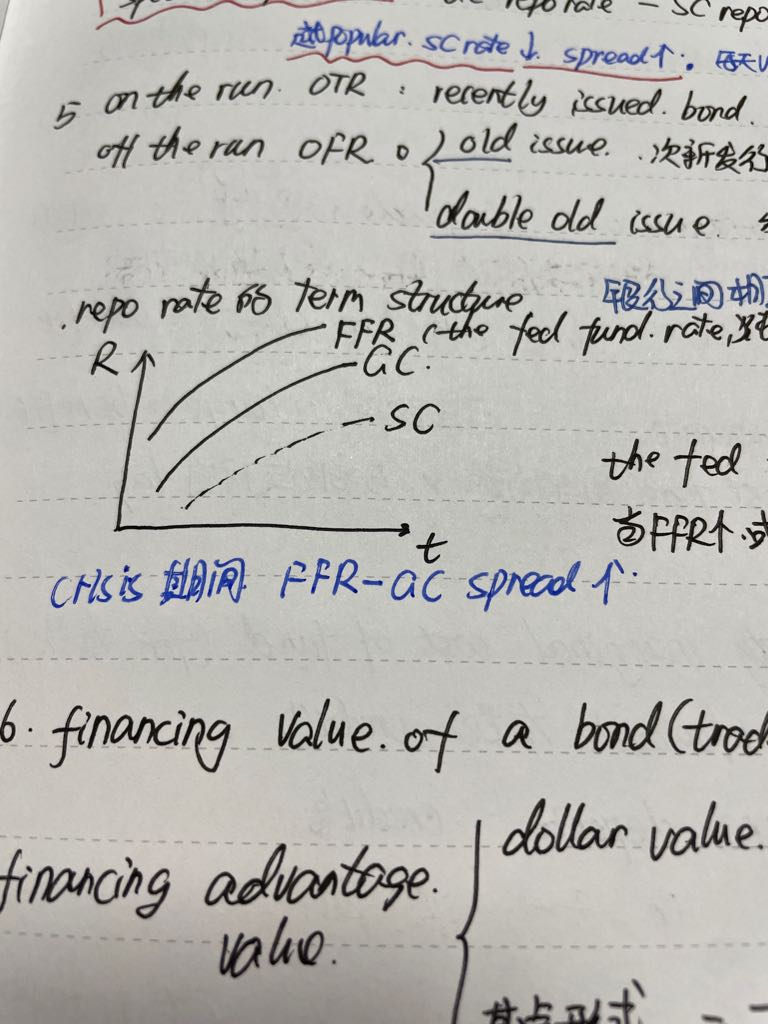 repo rate - SC repo
越popular. SC rate ↓. spread↑.
5 on the run. OTR : recently issued. bond.
off the run OFR. { old issue. .次新发行
double old issue.
.repo rate 的 term structure 银行之间
FFR (the fed fund. rate,
R GC.
SC
the fed
当FFR↑.
t
crisis 期间 FFR-GC spread↑.
6. financing value. of a bond (trad
dollar value.
financing advantage.
value.
基点形式 =